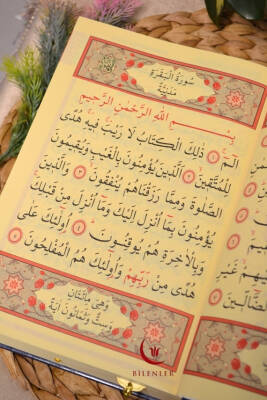 سُورَةُ الْبَقَرَةِ
مَدَنِيَّةٌ
بِسْمِ اللّٰهِ الرَّحْمٰنِ الرَّحِيمِ
الٓمٓ ۝١ ذٰلِكَ الْكِتَابُ لَا رَيْبَ فِيهِ هُدًى
لِلْمُتَّقِينَ ۝٢ اَلَّذِينَ يُؤْمِنُونَ بِالْغَيْبِ وَيُقِيمُونَ
الصَّلٰوةَ وَمِمَّا رَزَقْنَاهُمْ يُنْفِقُونَ ۝٣ وَالَّذِينَ
يُؤْمِنُونَ بِمَٓا اُنْزِلَ اِلَيْكَ وَمَٓا اُنْزِلَ مِنْ قَبْلِكَ
وَبِالْاٰخِرَةِ هُمْ يُوقِنُونَ ۝٤ اُو۬لٰٓئِكَ عَلٰى
هُدًى مِنْ رَبِّهِمْ وَاُو۬لٰٓئِكَ هُمُ الْمُفْلِحُونَ ۝٥
وَهِيَ مِائَتَانِ
وَسِتٌّ وَثَمَانُونَ اٰيَةً
غَيْرِ
الضَّالِّينَ
BİLENLER